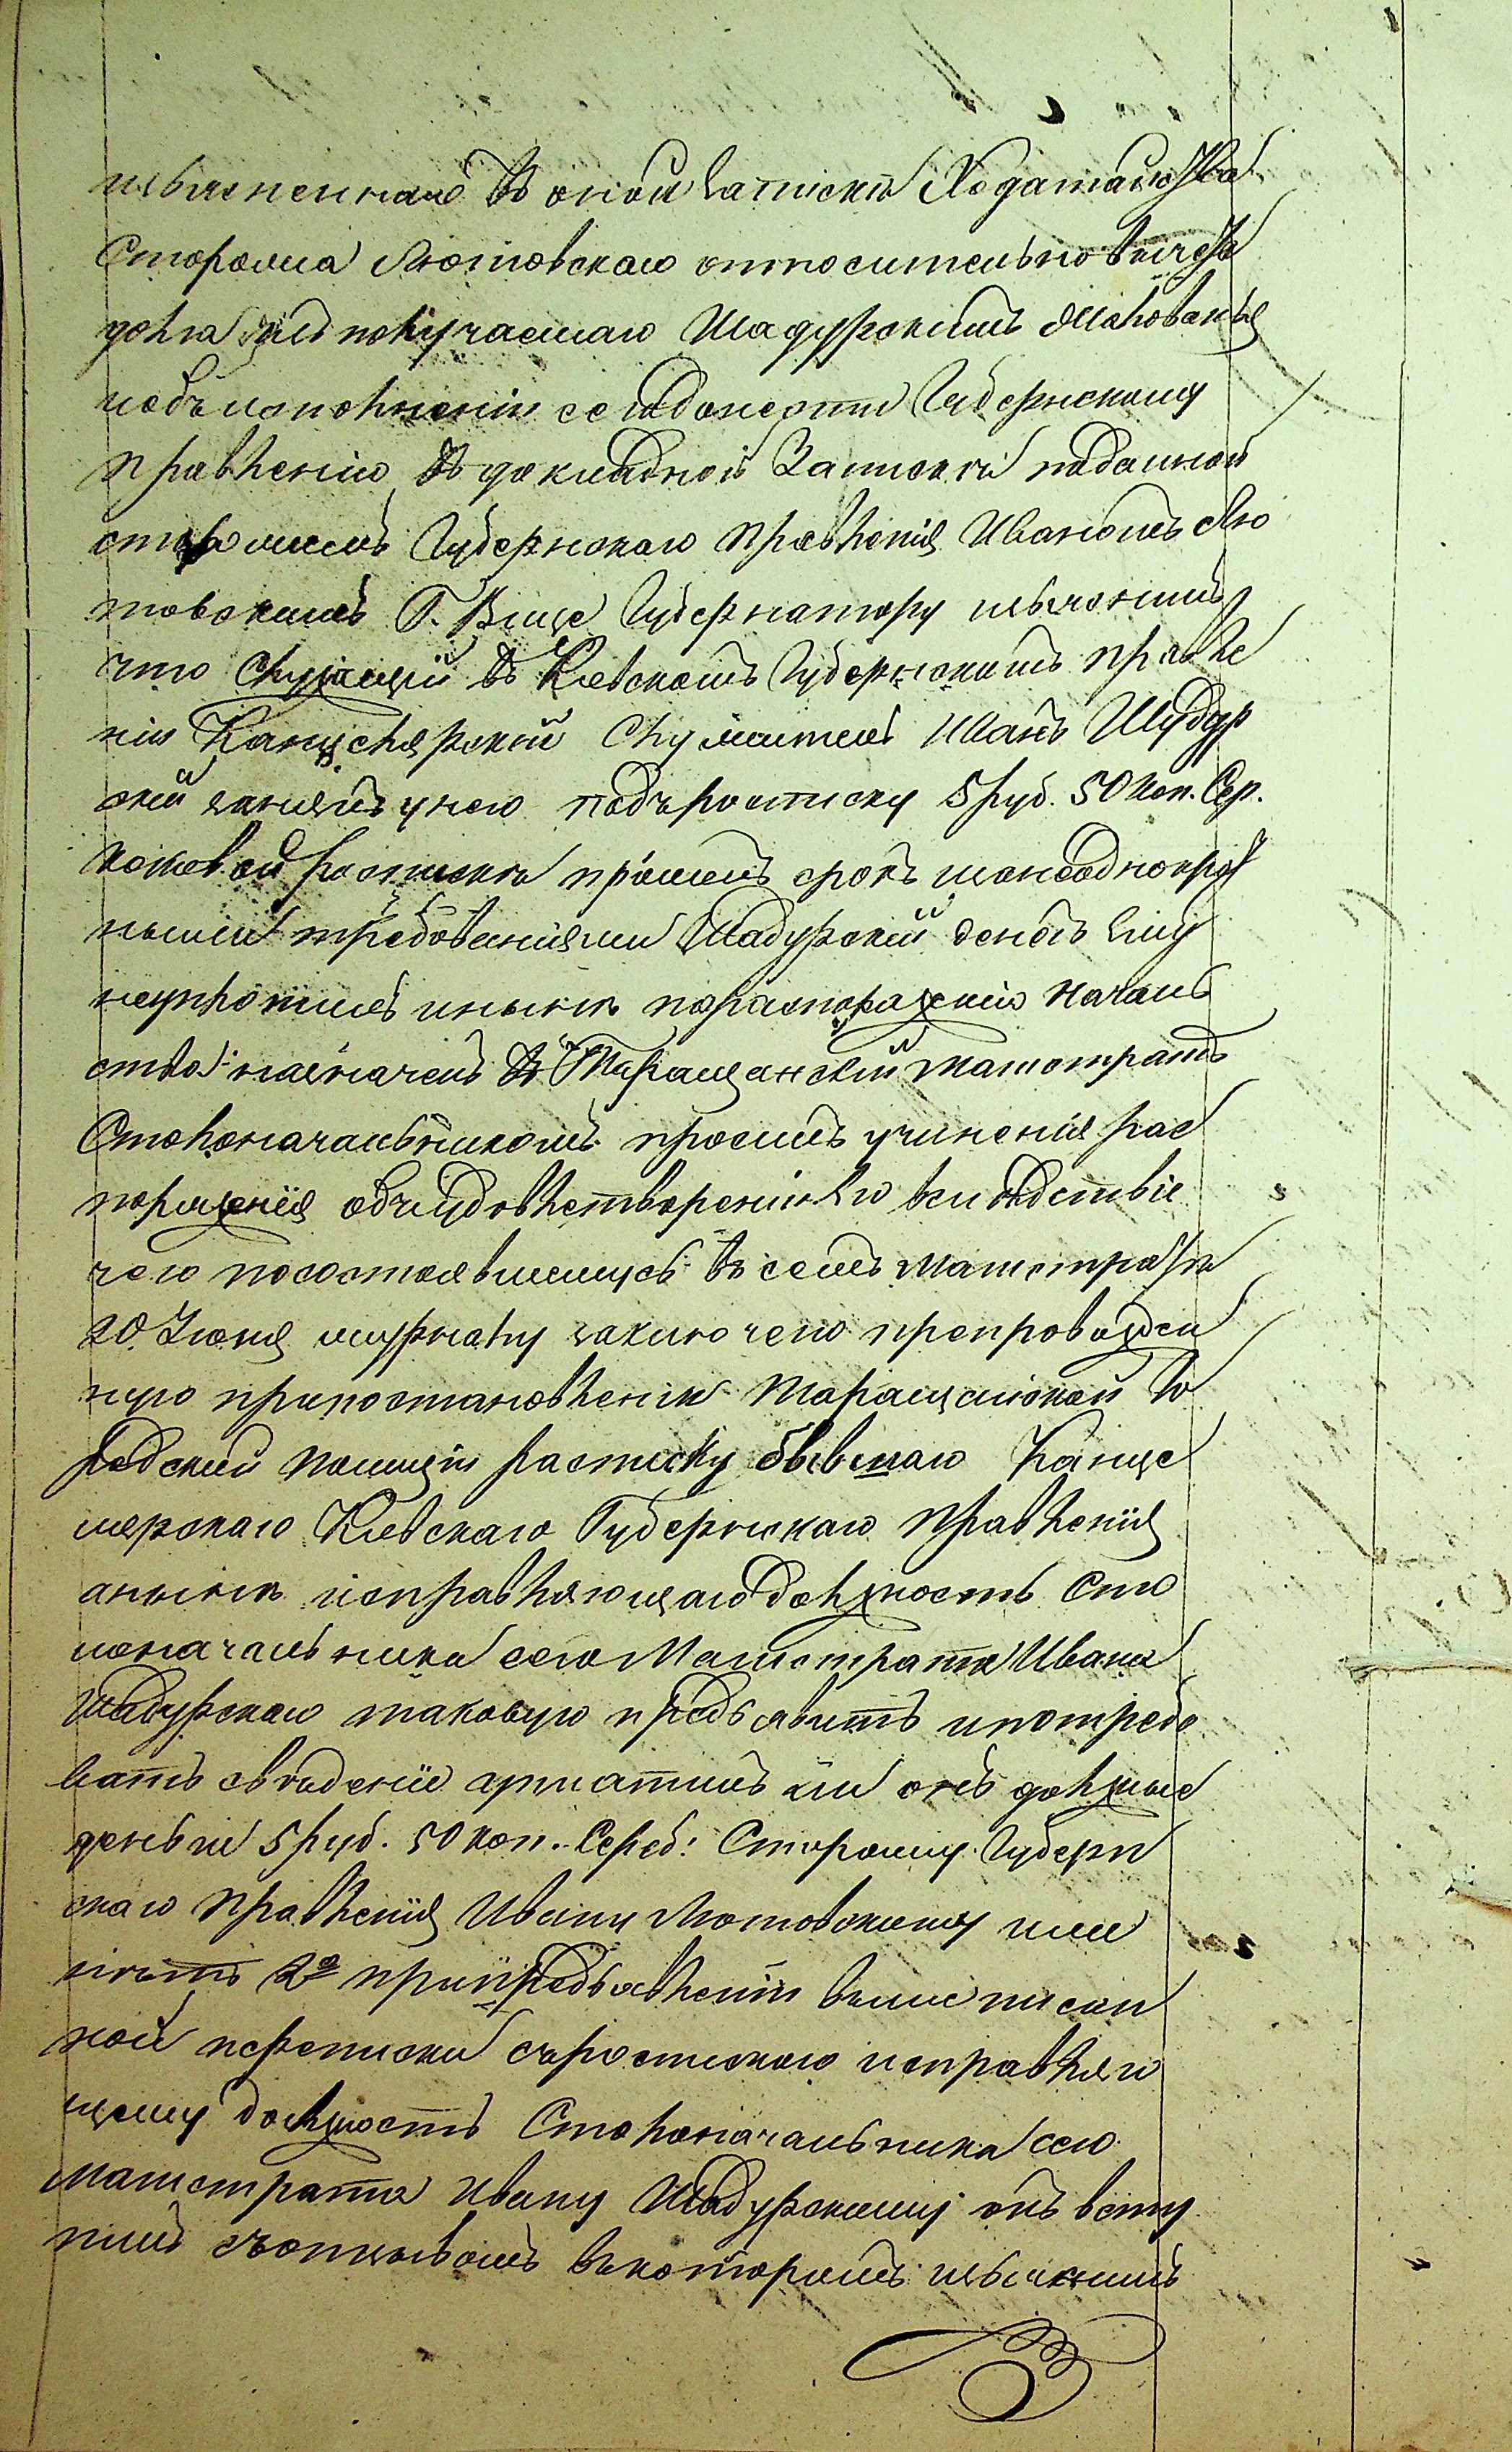 изъясненнаго въ оной запискѣ Ходатайства
Сторожа Лютовскаго относительно вычета
долга изъ получаемаго Шадурскимъ жалованья
иобъ исполненіи сего донести Губернскому
правленію, въ докладной Запискѣ поданной
сторожемъ Губернскаго правленія Иваномъ Лю
товскимъ Г. Вице Губернатору изъяснилъ
что служащій въ Кіевскомъ Губернскомъ правле
ніи Канцелярскій Служитель Иванъ Шадур
скій занялъ унего подъ росписку 5 руб. 50 коп. Сер.
покоевой роспискѣ прошелъ срокъ инеоднократ
ными требованіями Шадурскій денегъ ему
неуплотилъ инынѣ пораспоряженію началь
ства назначенъ въ Таращанскій магистратъ
Столоначальникомъ проситъ учиненія рас
поряженія объ удовлетвореніи его вслѣдствіе
чего посостоявшемусь въ семъ магистратѣ
20 Іюня журналу заключено препровожден
ную припостановленіи Таращанской Го
родской полиціи расписку бывшаго Канце
лярскаго Кіевскаго Губернскаго правленія
анынѣ исправляющаго должность Сто
лоначальника сего Магистрата Ивана
Шадурскаго таковую предъявить ипотребо
вать свѣденіе оплатилъ ли онъ должные
деньги 5 руб. 50 коп. Сереб: Сторожу Губерн
скаго правленія Ивану Лютовскому или
нѣтъ 2е припредъявленіи вышеписан
ной переписки съроспискою исправляю
щему должность Столоначальника сего
магистрата Ивану Шадурскому онъ всту
пилъ съотзывомъ вькоторомъ изъяснилъ